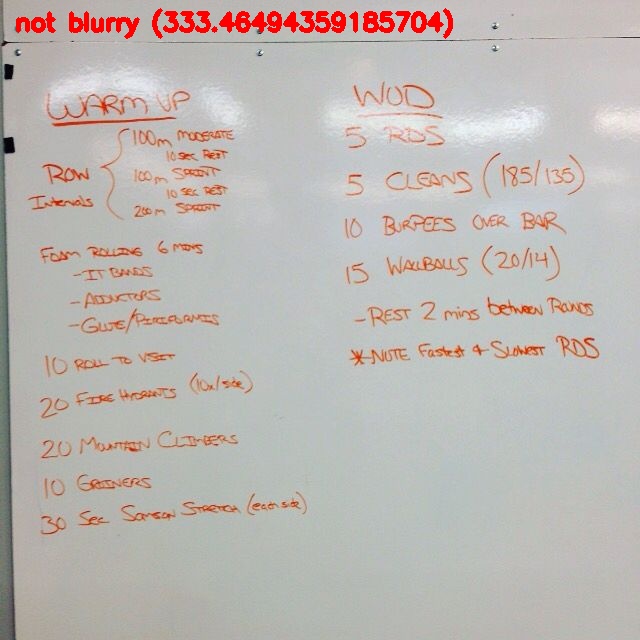 not blurry (333.46494359185704)
WARM UP
ROW Intervals
100m MODERATE
10 SEC REST
100m SPRINT
10 SEC REST
200m SPRINT
FOAM ROLLING 6 MINS
- IT BANDS
- ADDUCTORS
- GLUTE/PIRIFORMIS
10 ROLL TO VSIT
20 FIRE HYDRANTS (10x/side)
20 MOUNTAIN CLIMBERS
10 GRINERS
30 Sec SAMSON STRETCH (each side)
WOD
5 RDS
5 CLEANS (185/135)
10 BURPEES OVER BAR
15 WALLBALLS (20/14)
- REST 2 mins between Rounds
* NOTE Fastest + Slowest RDS